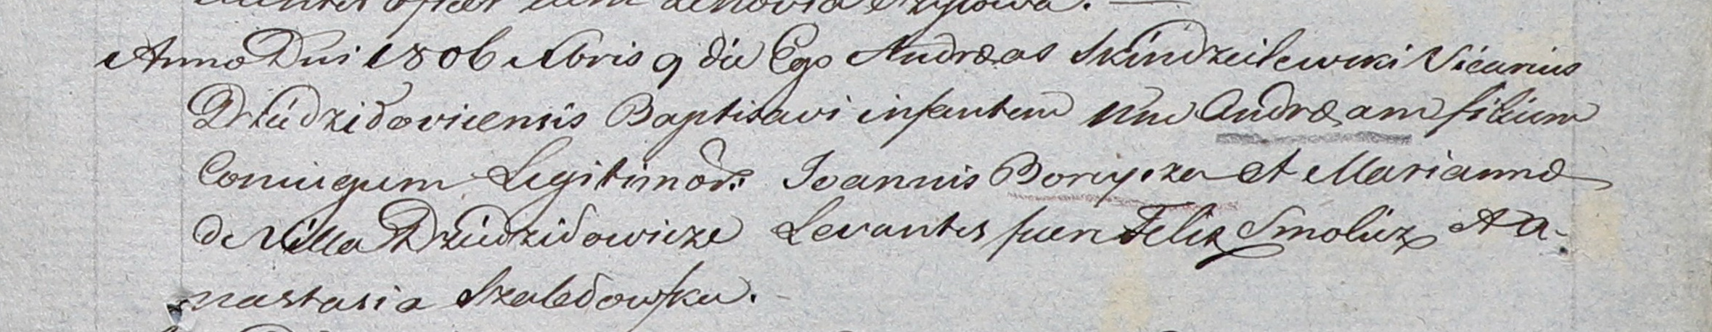 Anno Dni 1806 Xbris 9 die Ego Andreas Skindzeilewski Vicarius
Dziudzidoviciensis Baptisavi infantem nne Andream filium
Coniugum Legitimor: Joannis Borysza et Marianne
de Villa Dziudzidowicze Levantes fuere Felix Smolicz et A-
nastasia Szaledowska.